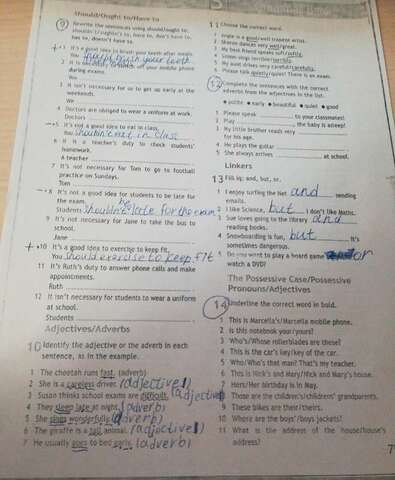 Should/Ought to/Have to
9 Rewrite the sentences using should/ought to,
shouldn't/oughtn't to, have to, don't have to,
has to, doesn't have to.
1 It's a good idea to brush your teeth after meals.
You should brush your teeth
2 It is to use your mobile phone
during exams.
You
3 It isn't necessary for us to get up early at the
weekends.
We
4 Doctors are obliged to wear a uniform at work.
Doctors
5 It's not a good idea to eat in class.
You shouldn't eat in class
6 It is a teacher's duty to check students'
homework.
A teacher
7 It's not necessary for Tom to go to football
practice on Sundays.
Tom
8 It's not a good idea for students to be late for
the exam.
Students shouldn't be late for the exam
9 It's not necessary for Jane to take the bus to
school.
Jane
10 It's a good idea to exercise to keep fit.
You should exercise to keep fit
11 It's Ruth's duty to answer phone calls and make
appointments.
Ruth
12 It isn't necessary for students to wear a uniform
at school.
Students
Adjectives/Adverbs
10 Identify the adjective or the adverb in each
sentence, as in the example.
1 The cheetah runs fast. (adverb)
2 She is a careless driver. (adjective)
3 Susan thinks school exams are difficult. (adjective)
4 They sleep late at night. (adverb)
5 She sings wonderfully. (adverb)
6 The giraffe is a tall animal. (adjective)
7 He usually goes to bed early. (adverb)
11 Choose the correct word.
1 Angie is a good/well trapeze artist.
2 Sharon dances very well/great.
3 My best friend speaks soft/softly.
4 sings terrible/terribly.
5 My aunt drives very careful/carefully.
6 Please talk quietly/quiet! There is an exam.
12 Complete the sentences with the correct
adverbs from the adjectives in the list.
• polite • early • beautiful • quiet • good
1 Please speak to your classmates!
2 Play , the baby is asleep!
3 My little brother reads very
for his age.
4 He plays the guitar
5 She always arrives at school.
Linkers
13 Fill in: and, but, or.
1 I enjoy surfing the Net and sending
emails.
2 I like Science, but I don't like Maths.
3 Sue loves going to the library and
reading books.
4 Snowboarding is fun, but it's
sometimes dangerous.
5 Do you want to play a board game or
watch a DVD?
The Possessive Case/Possessive
Pronouns/Adjectives
14 Underline the correct word in bold.
1 This is Marcella's/Marcella mobile phone.
2 Is this notebook your/yours?
3 Who's/Whose rollerblades are these?
4 This is the car's key/key of the car.
5 Who/Who's that man? That's my teacher.
6 This is Nick's and Mary/Nick and Mary's house.
7 Hers/Her birthday is in May.
8 Those are the children's/childrens' grandparents.
9 These bikes are their/theirs.
10 Where are the boys'/boys jackets?
11 What is the address of the house/house's
address?